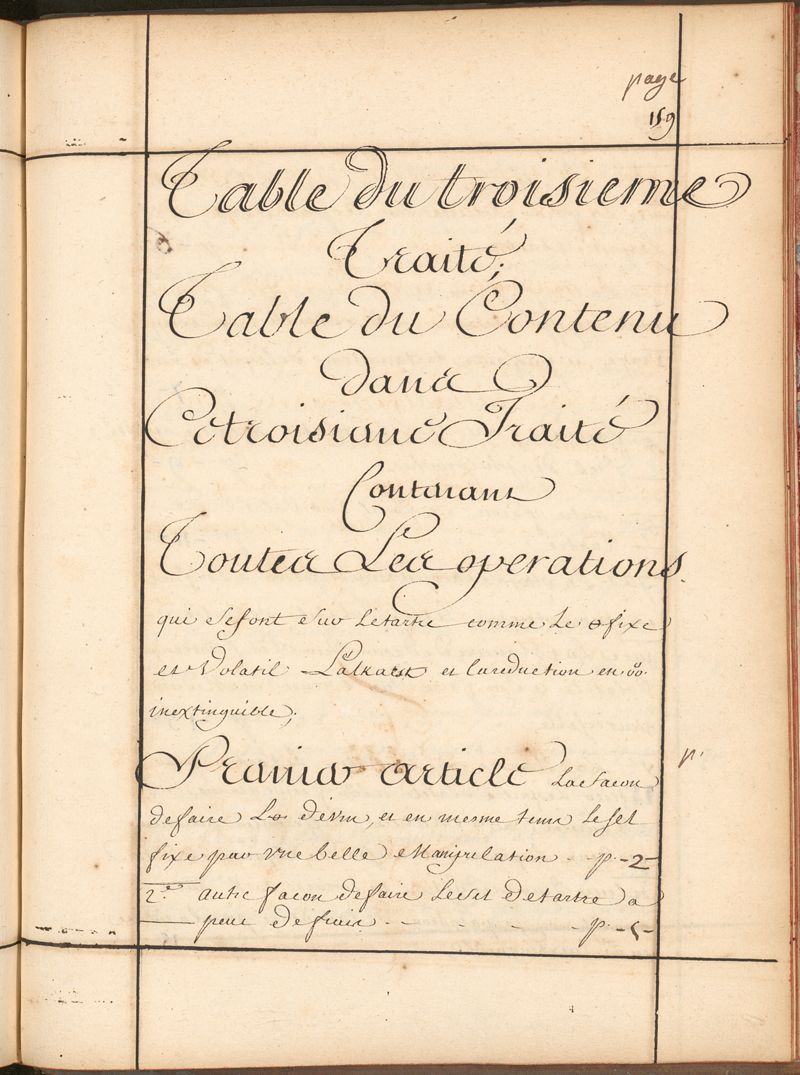 page
159
Table du troisieme
Traité;
Table du Contenu
dans
Ce troisieme Traité
Contenant
Toutes Les operations
qui se font sur le tartre comme le fixe
et Volatil L'alkaest et la reduction en
inextinguible;
p.
Premier article La facon
de faire L de vin, et en mesme tems le sel
fixe par une belle Manipulation - p. - 2 -
2.e autre facon de faire le sel de tartre a
peu de frais - - - - p. - 5 -